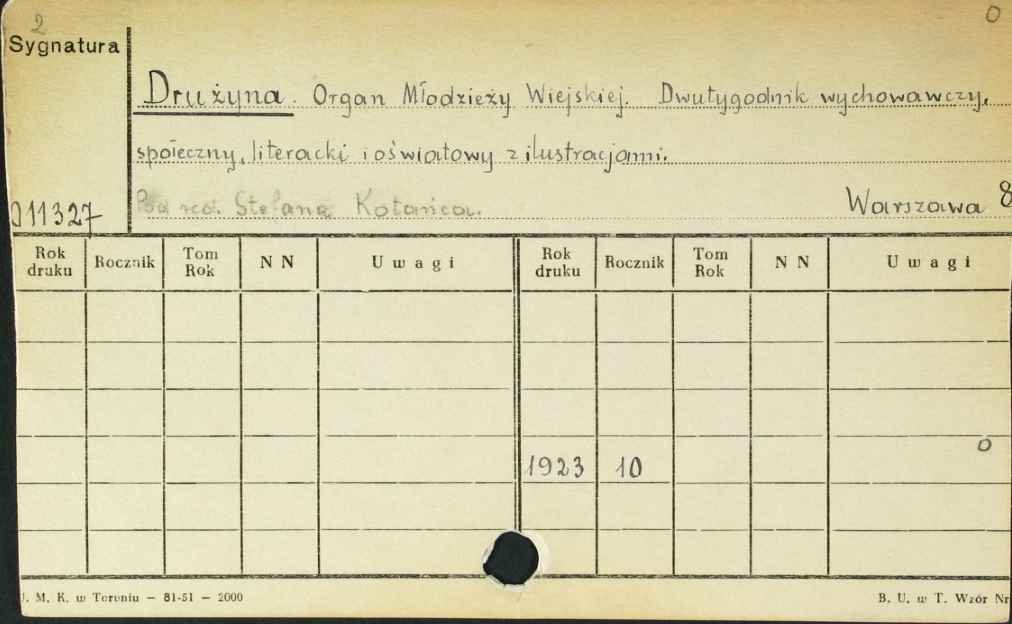 2 0
Sygnatura
Drużyna. Organ Młodzieży Wiejskiej. Dwutygodnik wychowawczy,
społeczny, literacki i oświatowy z ilustracjami.
Pod red. Stefana Kotańca. Warszawa 8
011327
Rok druku Rocznik Tom Rok N N Uwagi Rok druku Rocznik Tom Rok N N Uwagi
0
1923 10
. M. K. w Toruniu — 81-51 — 2000 B. U. w T. Wzór Nr